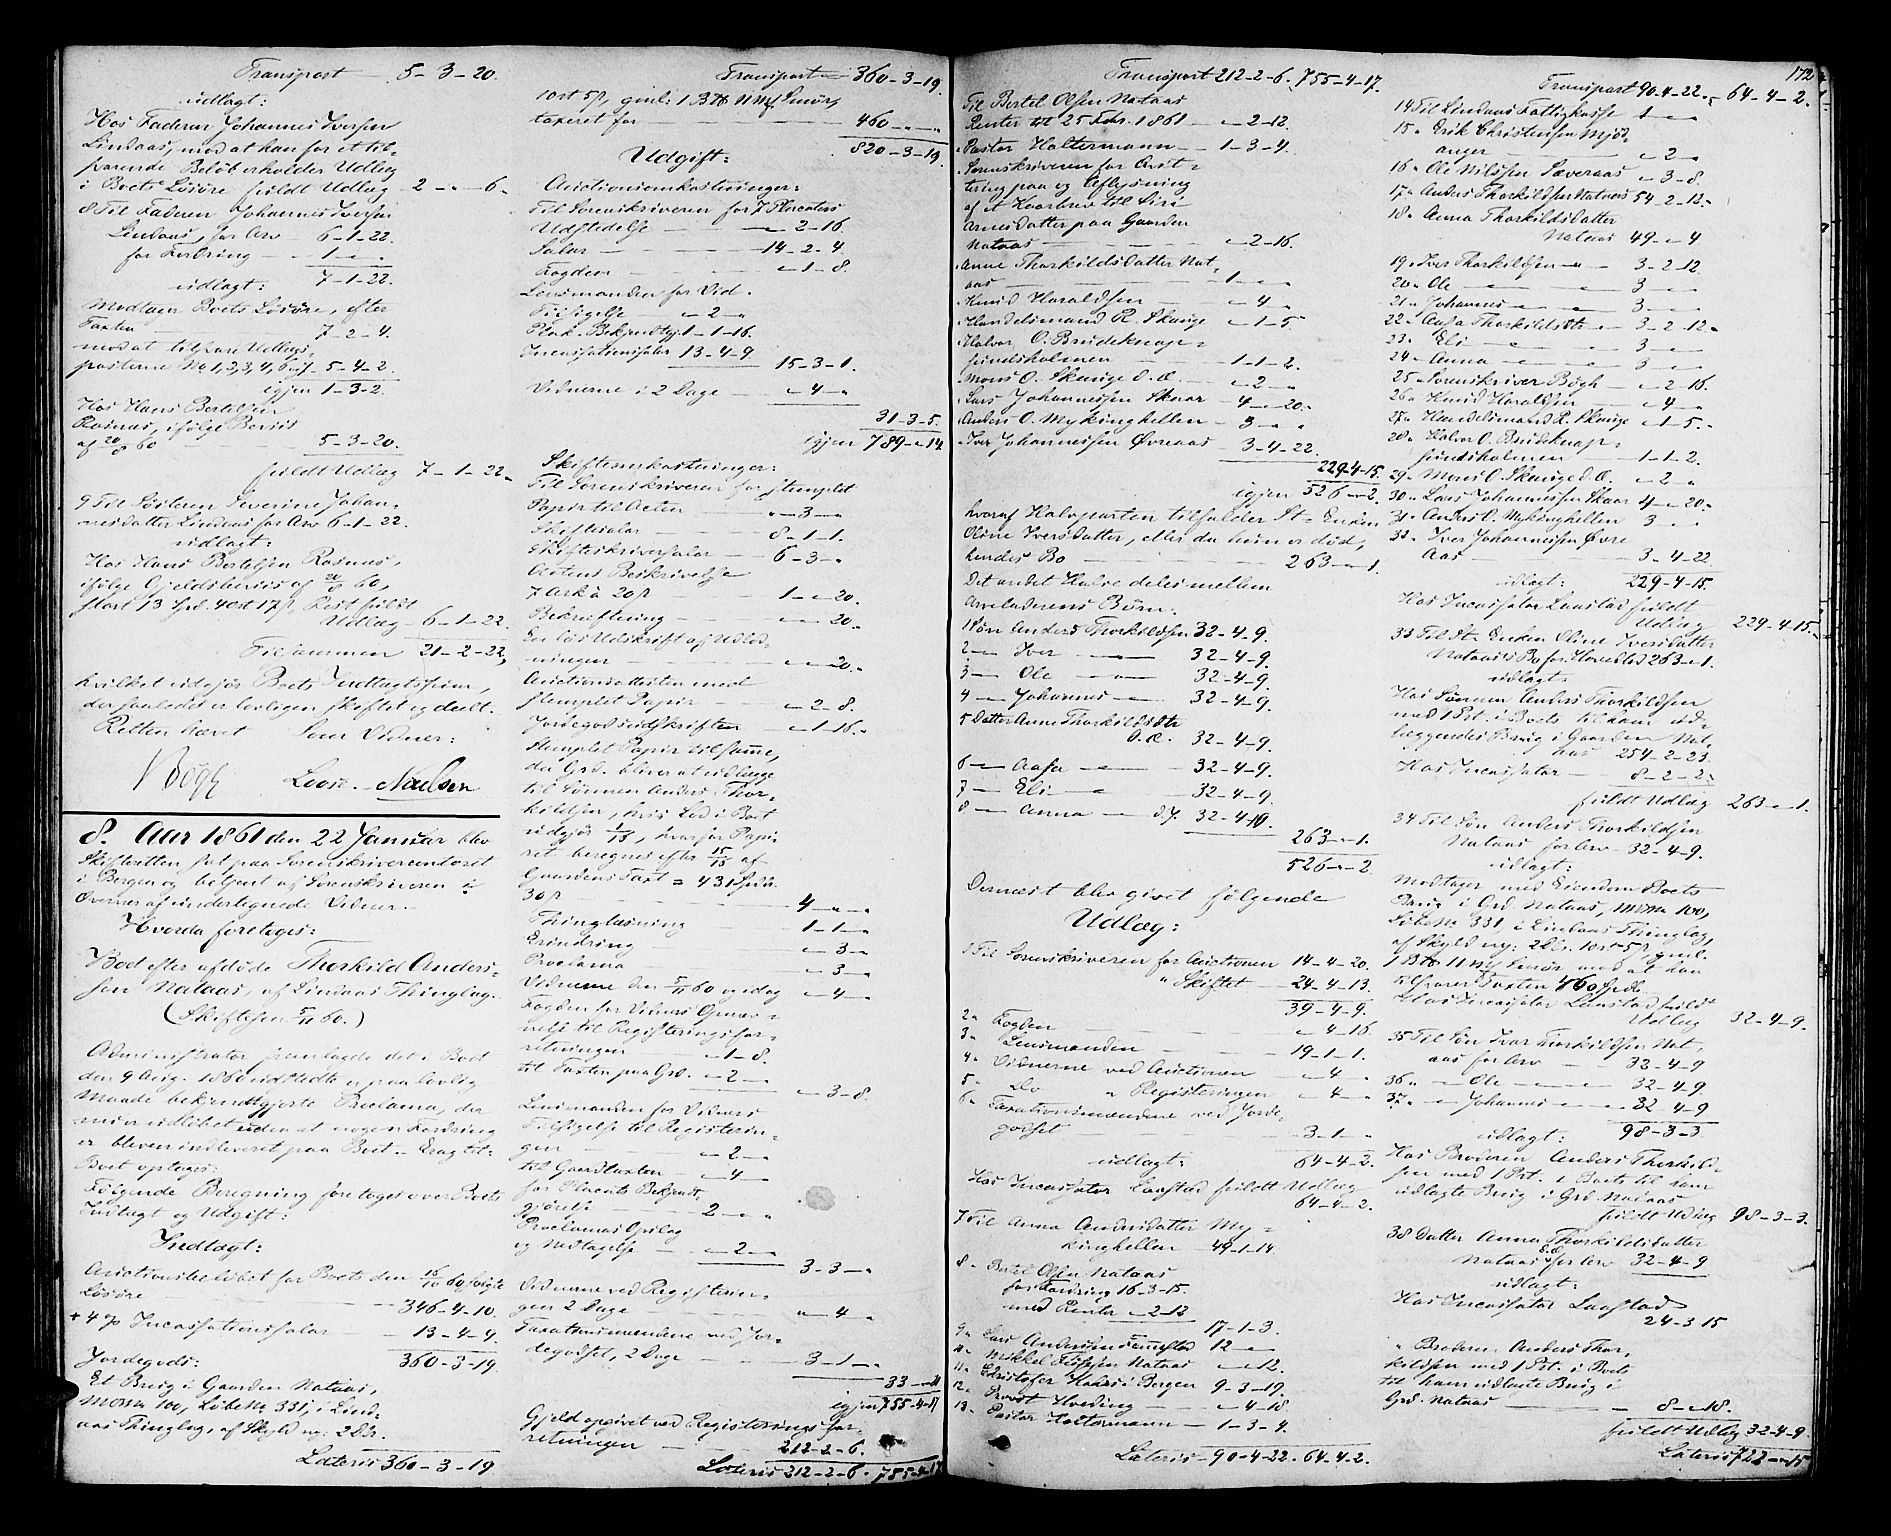 Transport 5-3-20.
udlagt:
Hos Faderen Johannes Iversen
Lindaas, mod at han for et til-
svarende Beløb erholder Udlæg
i Boets Løsøre fuldt Udlæg 2-„-6.
8 Til Faderen Johannes Iversen
Lindaas, for Arv 6-1-22.
for Fordring - 1-„-„
7-1-22.
udlagt:
Modtager Boets Løsøre, efter
Taxten 7-2-4.
mod at tilsvare Udlægs-
posterne No 1, 2, 3, 4, 6 og 7 5-4-2.
igjen 1-3-2.
Hos Hans Bertelsen
Rosnes, ifølge Bevis
af 20/8 60 5-3-20.
fuldt Udlæg 7-1-22.
9 Til Søsteren Severine Johan-
nesdatter Lindaas for Arv 6-1-22.
udlagt:
Hos Hans Bertelsen Rosnes,
ifølge Gjeldsbevis af 60,
stort 13 Spd. 4 ort 17 s, Rest fuldt
Udlæg 6-1-22.
Tilsammen 21-2-22,
hvilket udgjør Boets Indtægtssum,
der saaledes er lovligen skiftet og deelt.
Retten hævet Som Vidner:
Bøgh Loose. Nielsen
8. Aar 1861 den 22 Januar blev
Skifteretten sat paa Sorenskrivercontoret
i Bergen og betjent af Sorenskriveren i
Overvær af undertegnede Vidner.
Hvorda foretoges:
Boet efter afdøde Thorkild Anders-
sen Nataas, af Lindaas Thinglag.
(Skiftesen 5/11 60.)
Administrator fremlagde det i Boet
den 9 Aug. 1860 udstedte og paa lovlig
Maade bekjendtgjorte Proclama, der
nu er udløbet uden at nogen Fordring
er bleven indleveret paa Boet. Eragtet:
Boet optages:
Følgende Beregning foretoges over Boets
Indtægt og Udgift:
Indtægt:
Auctionsbeløbet for Boets den 16/10 60 solgte
Løsøre 346-4-10.
+ 4 % Incassationssalar 13-4-9.
360-3-19.
Jordegods:
Et Brug i Gaarden Nataas,
Mno 100, Løbe No 331, i Lind-
aas Thinglag, af Skyld ny: 2 Dlr.
Lateris 360-3-19
Transport 360-3-19.
1 ort 5 s, gml: 1 Bth 11 Mk Smør,
taxeret for 460-„-„
820-3-19.
Udgift:
Auctionsomkostninger:
Til Sorenskriveren for 7 Placaters
Udstedelse „-2-16.
Salar 14-2-4.
Fogden „-1-8.
Lensmanden for Vid.
Tilsigelse „-2-„
Plak. Bekjendtg. 1-1-16.
Incassationssalar 13-4-9
15-3-1.
Vidnerne i 2 Dage „-4-„
31-3-5.
igjen 789-„-14.
Skifteomkostninger:
Til Sorenskriveren for stemplet
Papir til Acten „-3-„
Skiftesalar 8-1-1.
Skifteskriversalar 6-3-„
Actens Beskrivelse
7 Ark à 20 s 1-„-20.
Bekræftning „-„-20.
En løs Udskrift af Udlod-
ningen „-„-20.
Auctionsattesten med
stemplet Papir „-2-8.
Jordegodsudskriften „-1-16.
Stemplet Papir til samme,
da Grd. bliver at udlægge
til Sønnen Anders Thor-
kildsen, hvis Lod i Boet
udgjør 1/18, hvorfor Papi-
ret beregnes efter 15/18 af
Gaardens Taxt = 431 Spd.
30 s 4-„-„
Thinglæsning 1-1-„
Erindring „-3-„
Proclama „-3-„
Vidnerne den 5/11 60 og idag „-4-„
Fogden for Vidners Opnæv-
nelse til Registeringsfor-
retningen „-1-8.
til Taxten paa Grd. „-2-„
„-3-8.
Lensmanden for Vidners
Tilsigelse til Registerin-
gen „-2-„
til Gaardtaxten „-4-„
for Placats Bekjendt-
gjørelse 2-„-„
Proclamas Opslag
og Nedtagelse „-2-„
3-3-„
Vidnerne ved Registerin-
gen 2 Dage „-4-„
Taxationsmændene ved Jor-
degodset, 2 Dage 3-1-„
33-„-21
igjen 755-4-17
Gjeld opgivet ved Registeringsfor-
retningen 212-2-6.
Lateris 212-2-6. 755-4-17
172
Transport 212-2-6. 755-4-17.
Til Bertel Olsen Nataas
Renter til 25 Febr. 1861 „-2-12.
„ Pastor Holtermann 1-3-4.
„ Sorenskriveren for Anit-
tering paa og Aflysning
af et Haarbrev til Siri
Arnesdatter paa Gaarden
Nataas „-2-16.
„ Anne Thorkildsdatter Nat-
aas 1-„-„
„ Knud Haraldsen „-4-„
„ Handelsmand R. Skauge „-1-5.
„ Halvor O. Brudeknap-
sundsholmen 1-1-2.
„ Mons O. Skauge d. Æ. „-2-„
„ Lars Johannessen Skaar 4-„-20.
„ Anders O. Mykinghellen 3-„-„
„ Iver Johannessen Øvreaas 3-4-22.
229-4-15.
igjen 526-„-2.
hvoraf Halvparten tilfalder St. Enken
Oline Iversdatter, eller da hun er død,
hendes Bo 263-„-1.
Det andet Halve deles mellem
Arveladerens Børn.
1 Søn Anders Thorkildsen 32-4-9.
2 — Iver — 32-4-9.
3 — Ole — 32-4-9.
4 — Johannes — 32-4-9.
5 Datter Anne Thorkildsdtr
d. Æ. 32-4-9.
6 — Aasa — 32-4-9.
7 — Eli — 32-4-9.
8 — Anna — d. Y. 32-4-10.
263-„-1.
526-„-2.
Dernæst blev givet følgende
Udlæg:
1 Til Sorenskriveren for Auctionen 14-4-20.
„ Skiftet 24-4-13.
39-4-9.
2 „ Fogden „-4-16.
3 „ Lensmanden 19-1-1.
4 „ Vidnerne ved Auctionen „-4-„
5 „ Do „ Registeringen „-4-„
6 „ Taxationsmændene ved Jorde-
godset 3-1-„
64-4-2.
udlagt:
Hos Incassator Laastad fuldt Udlæg
64-4-2.
7 Til Anna Andersdatter My-
kinghellen 49-1-14.
8 „ Bertel Olsen Nataas
for Fordring 16-3-15.
med Renter „-2-12
17-1-3.
9 „ Lars Andersen 12-„
10 „ Mikkel Nataas „-„-12.
11 „ Christofer i Bergen 9-3-19.
12 „ Provst Hveding „-4-18.
13 „ Pastor Holtermann 1-3-4.
Lateris 90-4-22. 64-4-2.
Transport 90-4-22. 64-4-2.
14 Til Lindaas Fattigkasse 1-„-„
15 „ Erik Christensen Mjøs-
anger „-2-„
16 „ Ole Nilssen Sæveraas „-3-8.
17 „ Anders Thorkildsen Nataas 54-2-12.
18 „ Anna Thorkildsdatter
Nataas 49-„-4
19 „ Iver Thorkildsen 3-2-12.
20 „ Ole 3-„-„
21 „ Johannes 3-„-„
22 „ Aasa Thorkildsdtr 3-2-12.
23 „ Eli 3-„-„
24 „ Anna 3-„-„
25 „ Sorenskriver Bøgh „-2-16.
26 „ Knud Haraldsen „-4-„
27 „ Handelsmand R. Skauge „-1-5.
28 „ Halvor O. Brudeknap-
sundsholmen 1-1-2.
29 „ Mons O. Skauge d. Æ. „-2-„
30 „ Lars Johannessen Skaar 4-„-20.
31 „ Anders O. Mykinghellen 3-„-„
32 „ Iver Johannessen Øvre-
aas 3-4-22
udlagt: 229-4-15.
Hos Incassator Laastad fuldt
Udlæg 229-4-15.
33 Til St. Enken Oline Iversdatter
Nataas Bo for Hovedlod 263-„-1.
udlagt:
Hos Sønnen Anders Thorkildsen
med 1 Prt. i Boets til ham ud-
læggendes Brug i Gaarden Nat-
aas 254-2-23.
Hos Incassator 8-2-2.
fuldt Udlæg 263-„-1.
34 Til Søn Anders Thorkildsen
Nataas for Arv 32-4-9.
udlagt:
Modtager med Eiendom Boets
Brug i Grd. Nataas, Mno 100,
Løbe No 331, i Lindaas Thinglag,
af Skyld ny: 2 Dlr. 1 ort 5 s, gml.
1 Bth 11 Mk Smør mod at han
tilsvarer Taxten 460 Spd.
Hos Incassator Laastad fuldt
Udlæg 32-4-9.
35 Til Søn Iver Thorkildsen Nat-
aas for Arv 32-4-9
36 „ — Ole — 32-4-9.
37 „ — Johannes — 32-4-9
udlagt: 98-3-3.
Hos Broderen Anders Thorkild-
sen med 1 Prt. i Boets til ham
udlagte Brug i Grd. Nataas
fuldt Udlæg 98-3-3.
38 Datter Anna Thorkildsdatter
Nataas d. Æ. for Arv 32-4-9
udlagt:
Hos Incassator Laastad
24-3-15
„ Broderen Anders Thor-
kildsen med 1 Prt. i Boets
til ham udlagte Brug i
Grd. Nataas 8-„-18.
fuldt Udlæg 32-4-9.
Lateris 722-„-15